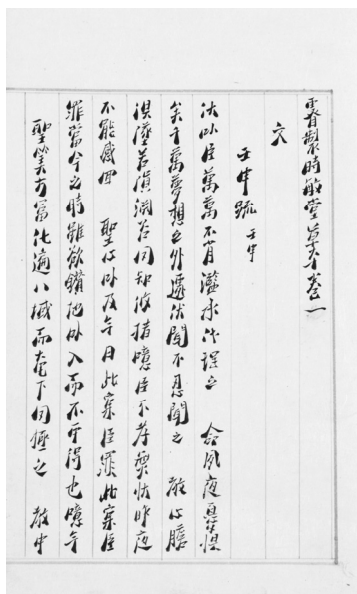 睿製時敏堂草本卷一
文
壬申疏 壬申
伏以臣萬萬不肖濫承代理之 命夙夜惶懼
矣千萬夢想之外遽伏聞不忍聞之 敎心膽
俱墜若隕淵谷罔知攸措噫臣不孝無狀昨夜
不能感回 聖心以及今日此寔臣罪此寔臣
罪當今之時雖欲鑽地以入而不可得也噫今
聖筭方富化遍八域而奄下罔極之 敎中